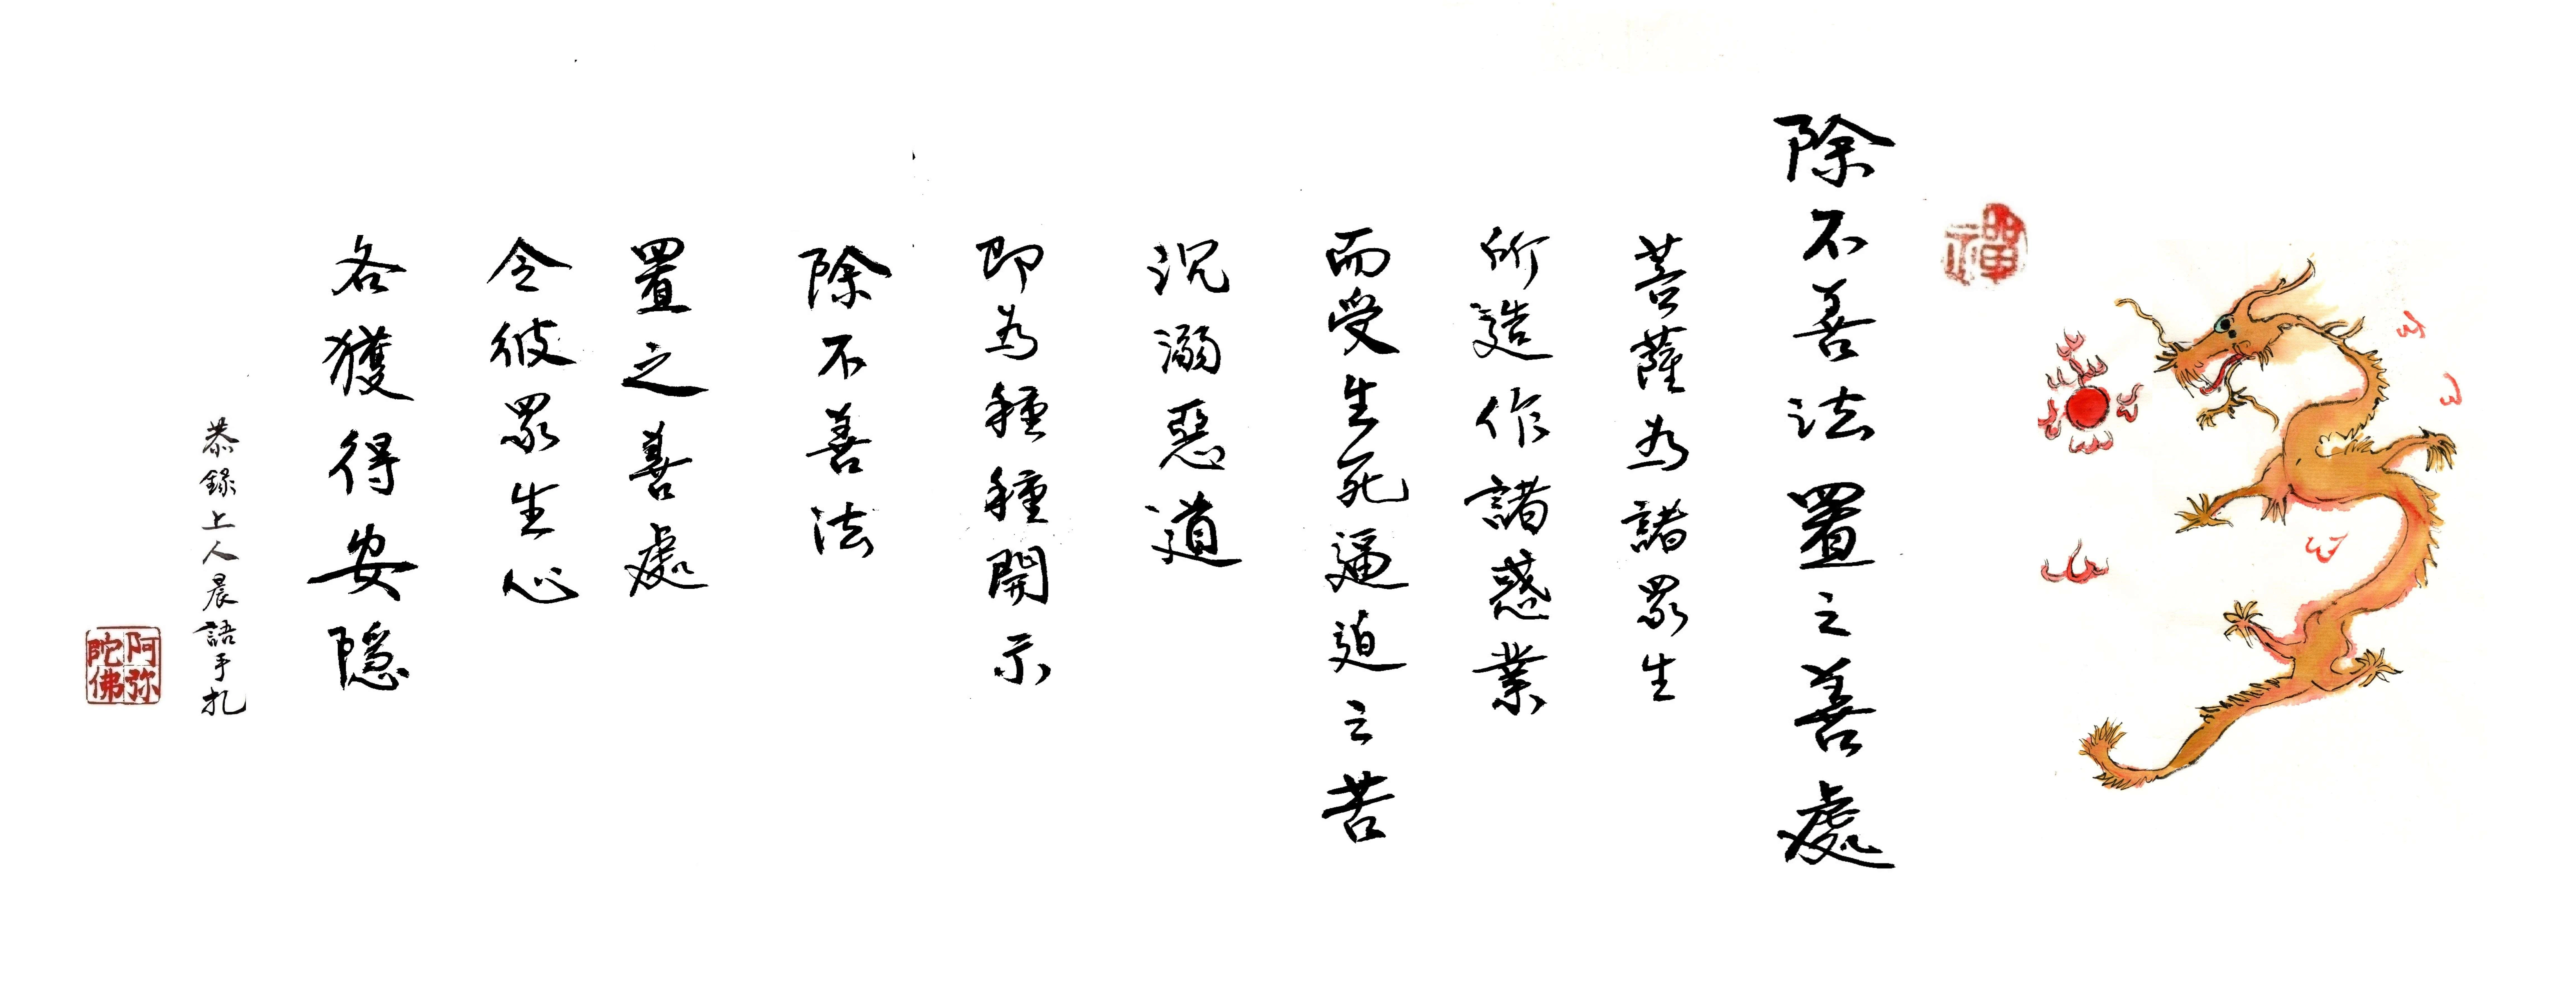 禪
除不善法置之善處
菩薩為諸眾生
所造作諸惑業
而受生死逼迫之苦
沉溺惡道
即為種種開示
除不善法
置之善處
令彼眾生心
各獲得安隱
恭錄上人晨語手札
阿弥陀佛